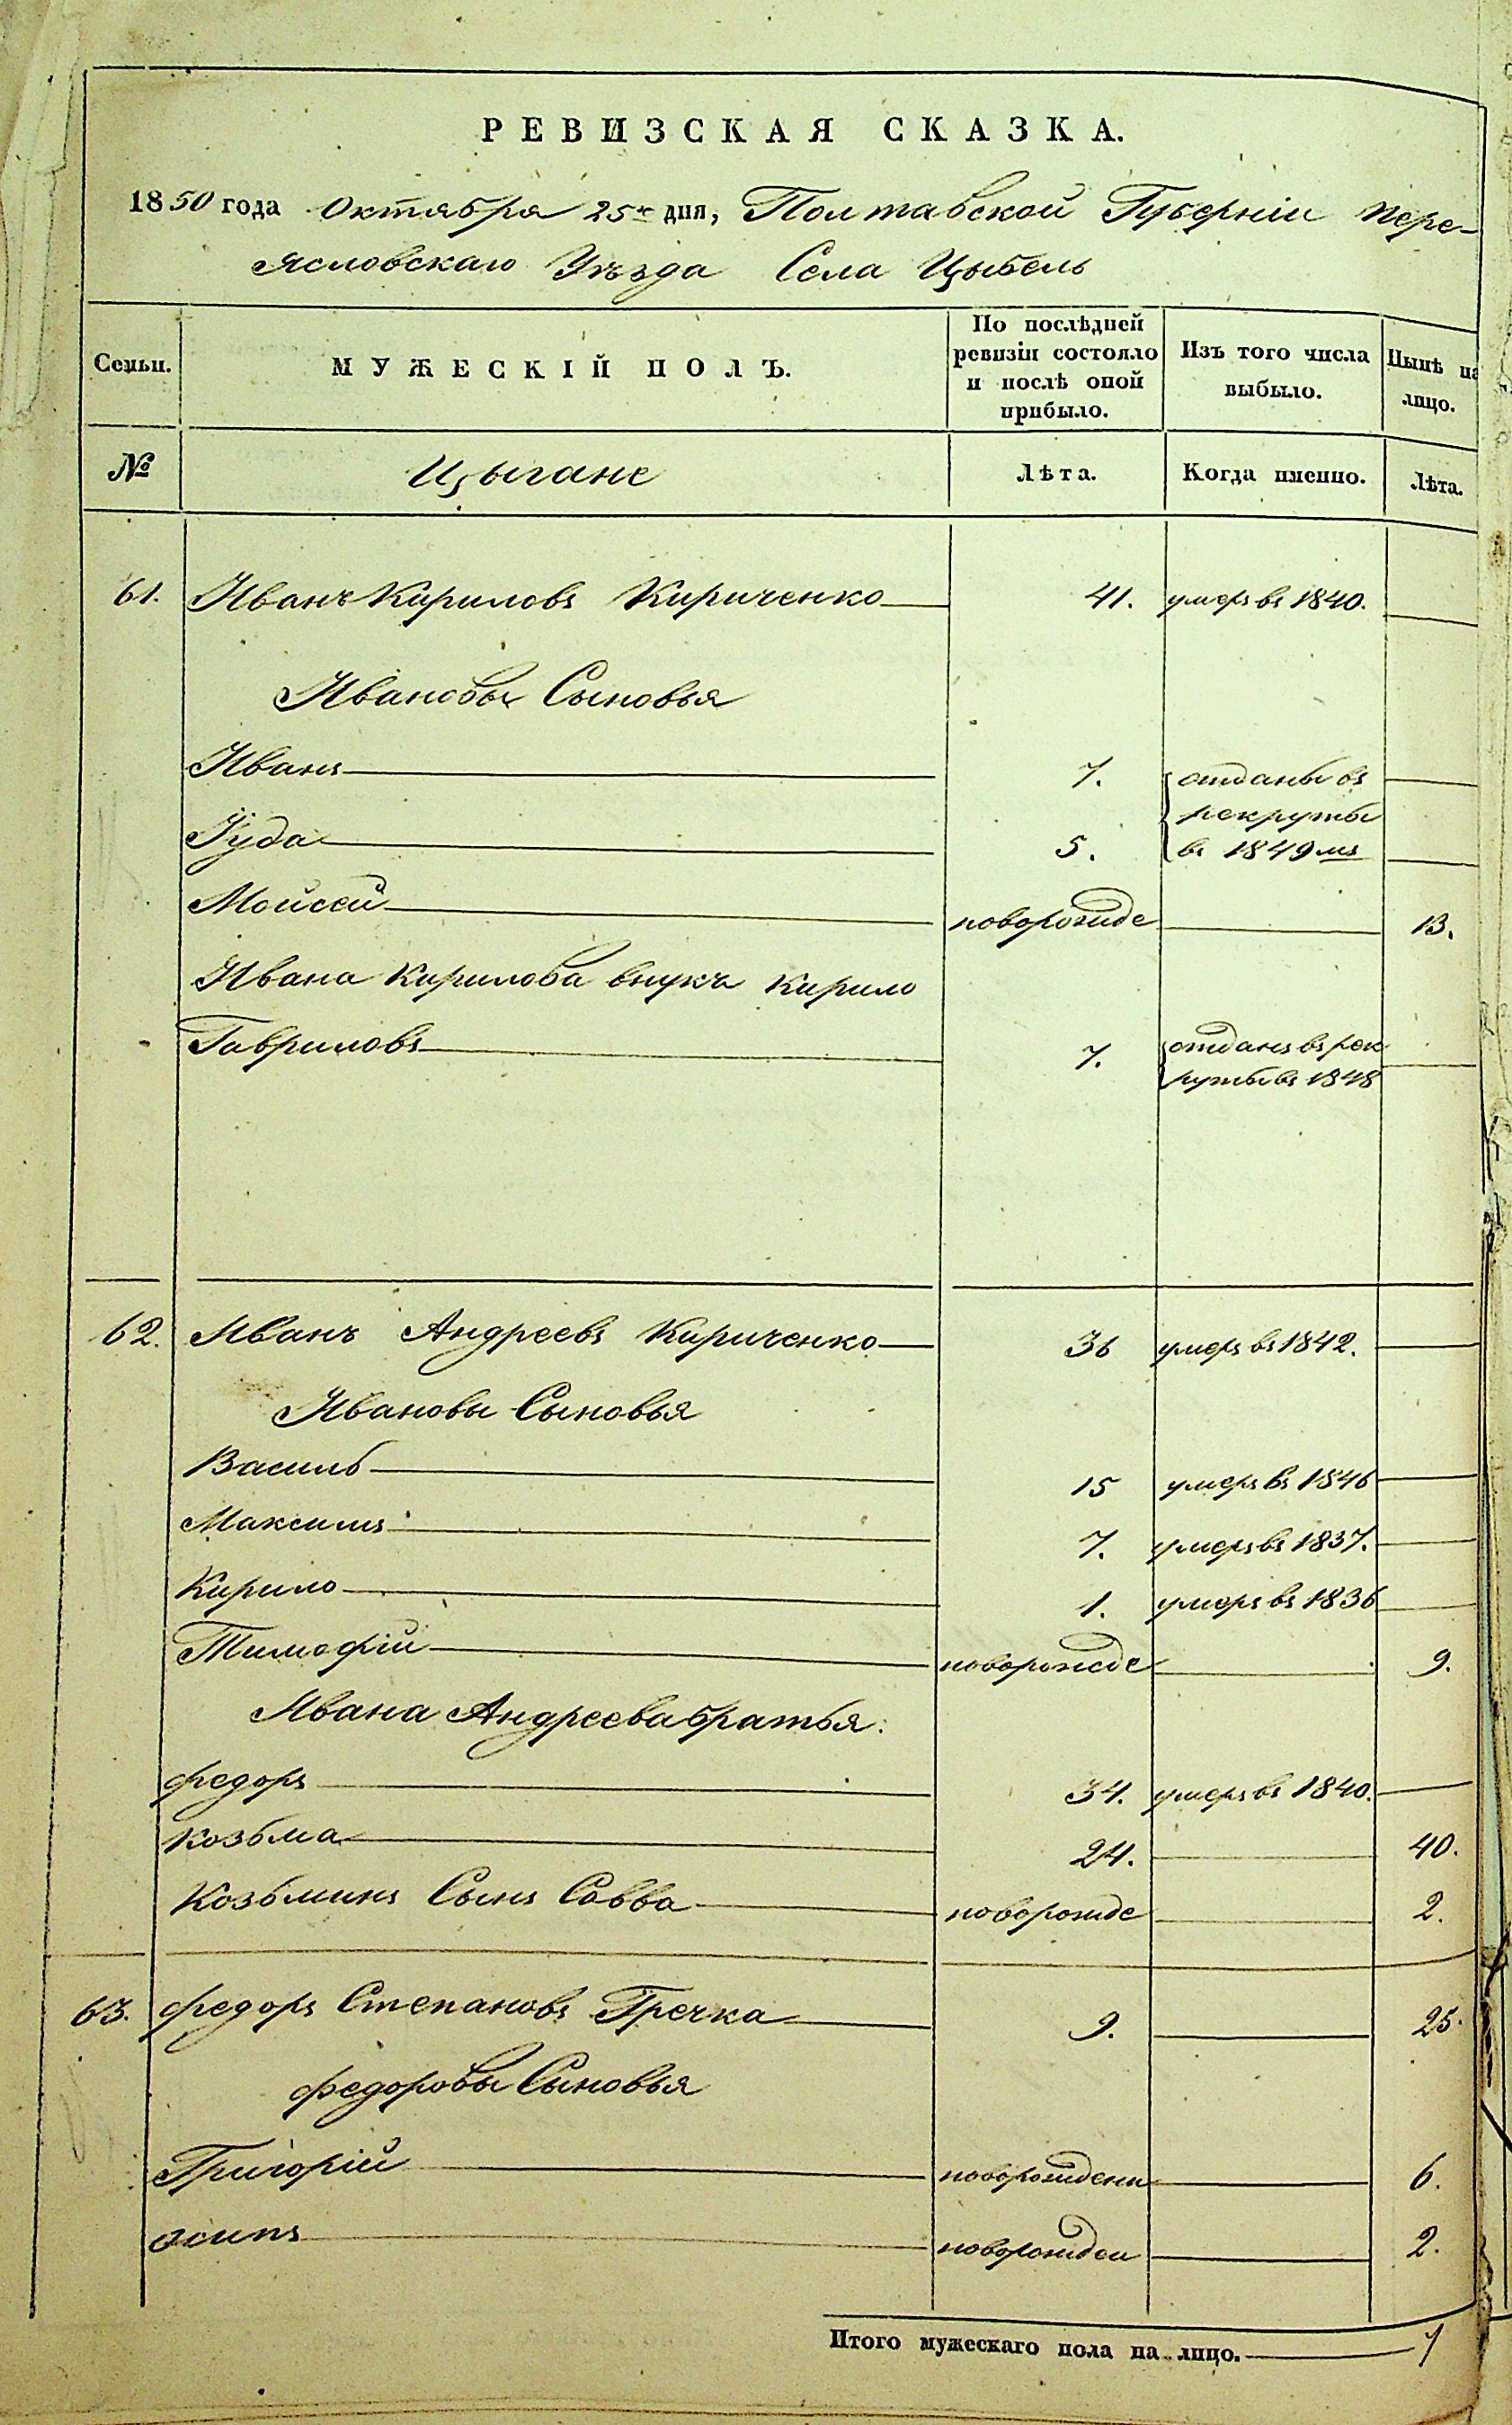 РЕВИЗСКАЯ СКАЗКА.
1850 года Октября 25го дня, Полтавской Губерніи Пере-
ясловскаго Уѣзда Села Цыбель
Семьи.
МУЖЕСКІЙ ПОЛЪ.
По послѣдней
ревизіи состояло
и послѣ оной
прибыло.
Изъ того числа
выбыло.
Нынѣ на
лицо.
№ Цыгане Лѣта. Когда именно. Лѣта.
61. Иванъ Кириловъ Кириченко 41. умеръ въ 1840.
Ивановы Сыновья
Иванъ 7. отданы въ
рекруты
Іуда 5. въ 1849мъ
Мойсей новорожде 13.
Ивана Кирилова внукъ Кирило
Гавриловъ 7. отданъ въ рек
руты въ 1848
62. Иванъ Андреевъ Кириченко 36 умеръ въ 1842.
Ивановы Сыновья
Василь 15 умеръ въ 1846
Максимъ 7. умеръ въ 1837.
Кирило 1. умеръ въ 1836
Тимофій новорожде 9.
Ивана Андреева братья:
Федоръ 34. умеръ въ 1840.
Козьма 24. 40.
Козьминъ Сынъ Савва новорожде 2.
63. Федоръ Степановъ Гречка 9. 25.
Федоровы Сыновья
Григорій новорожденн 6.
Осипъ новорожден 2.
Итого мужескаго пола на лицо. 7